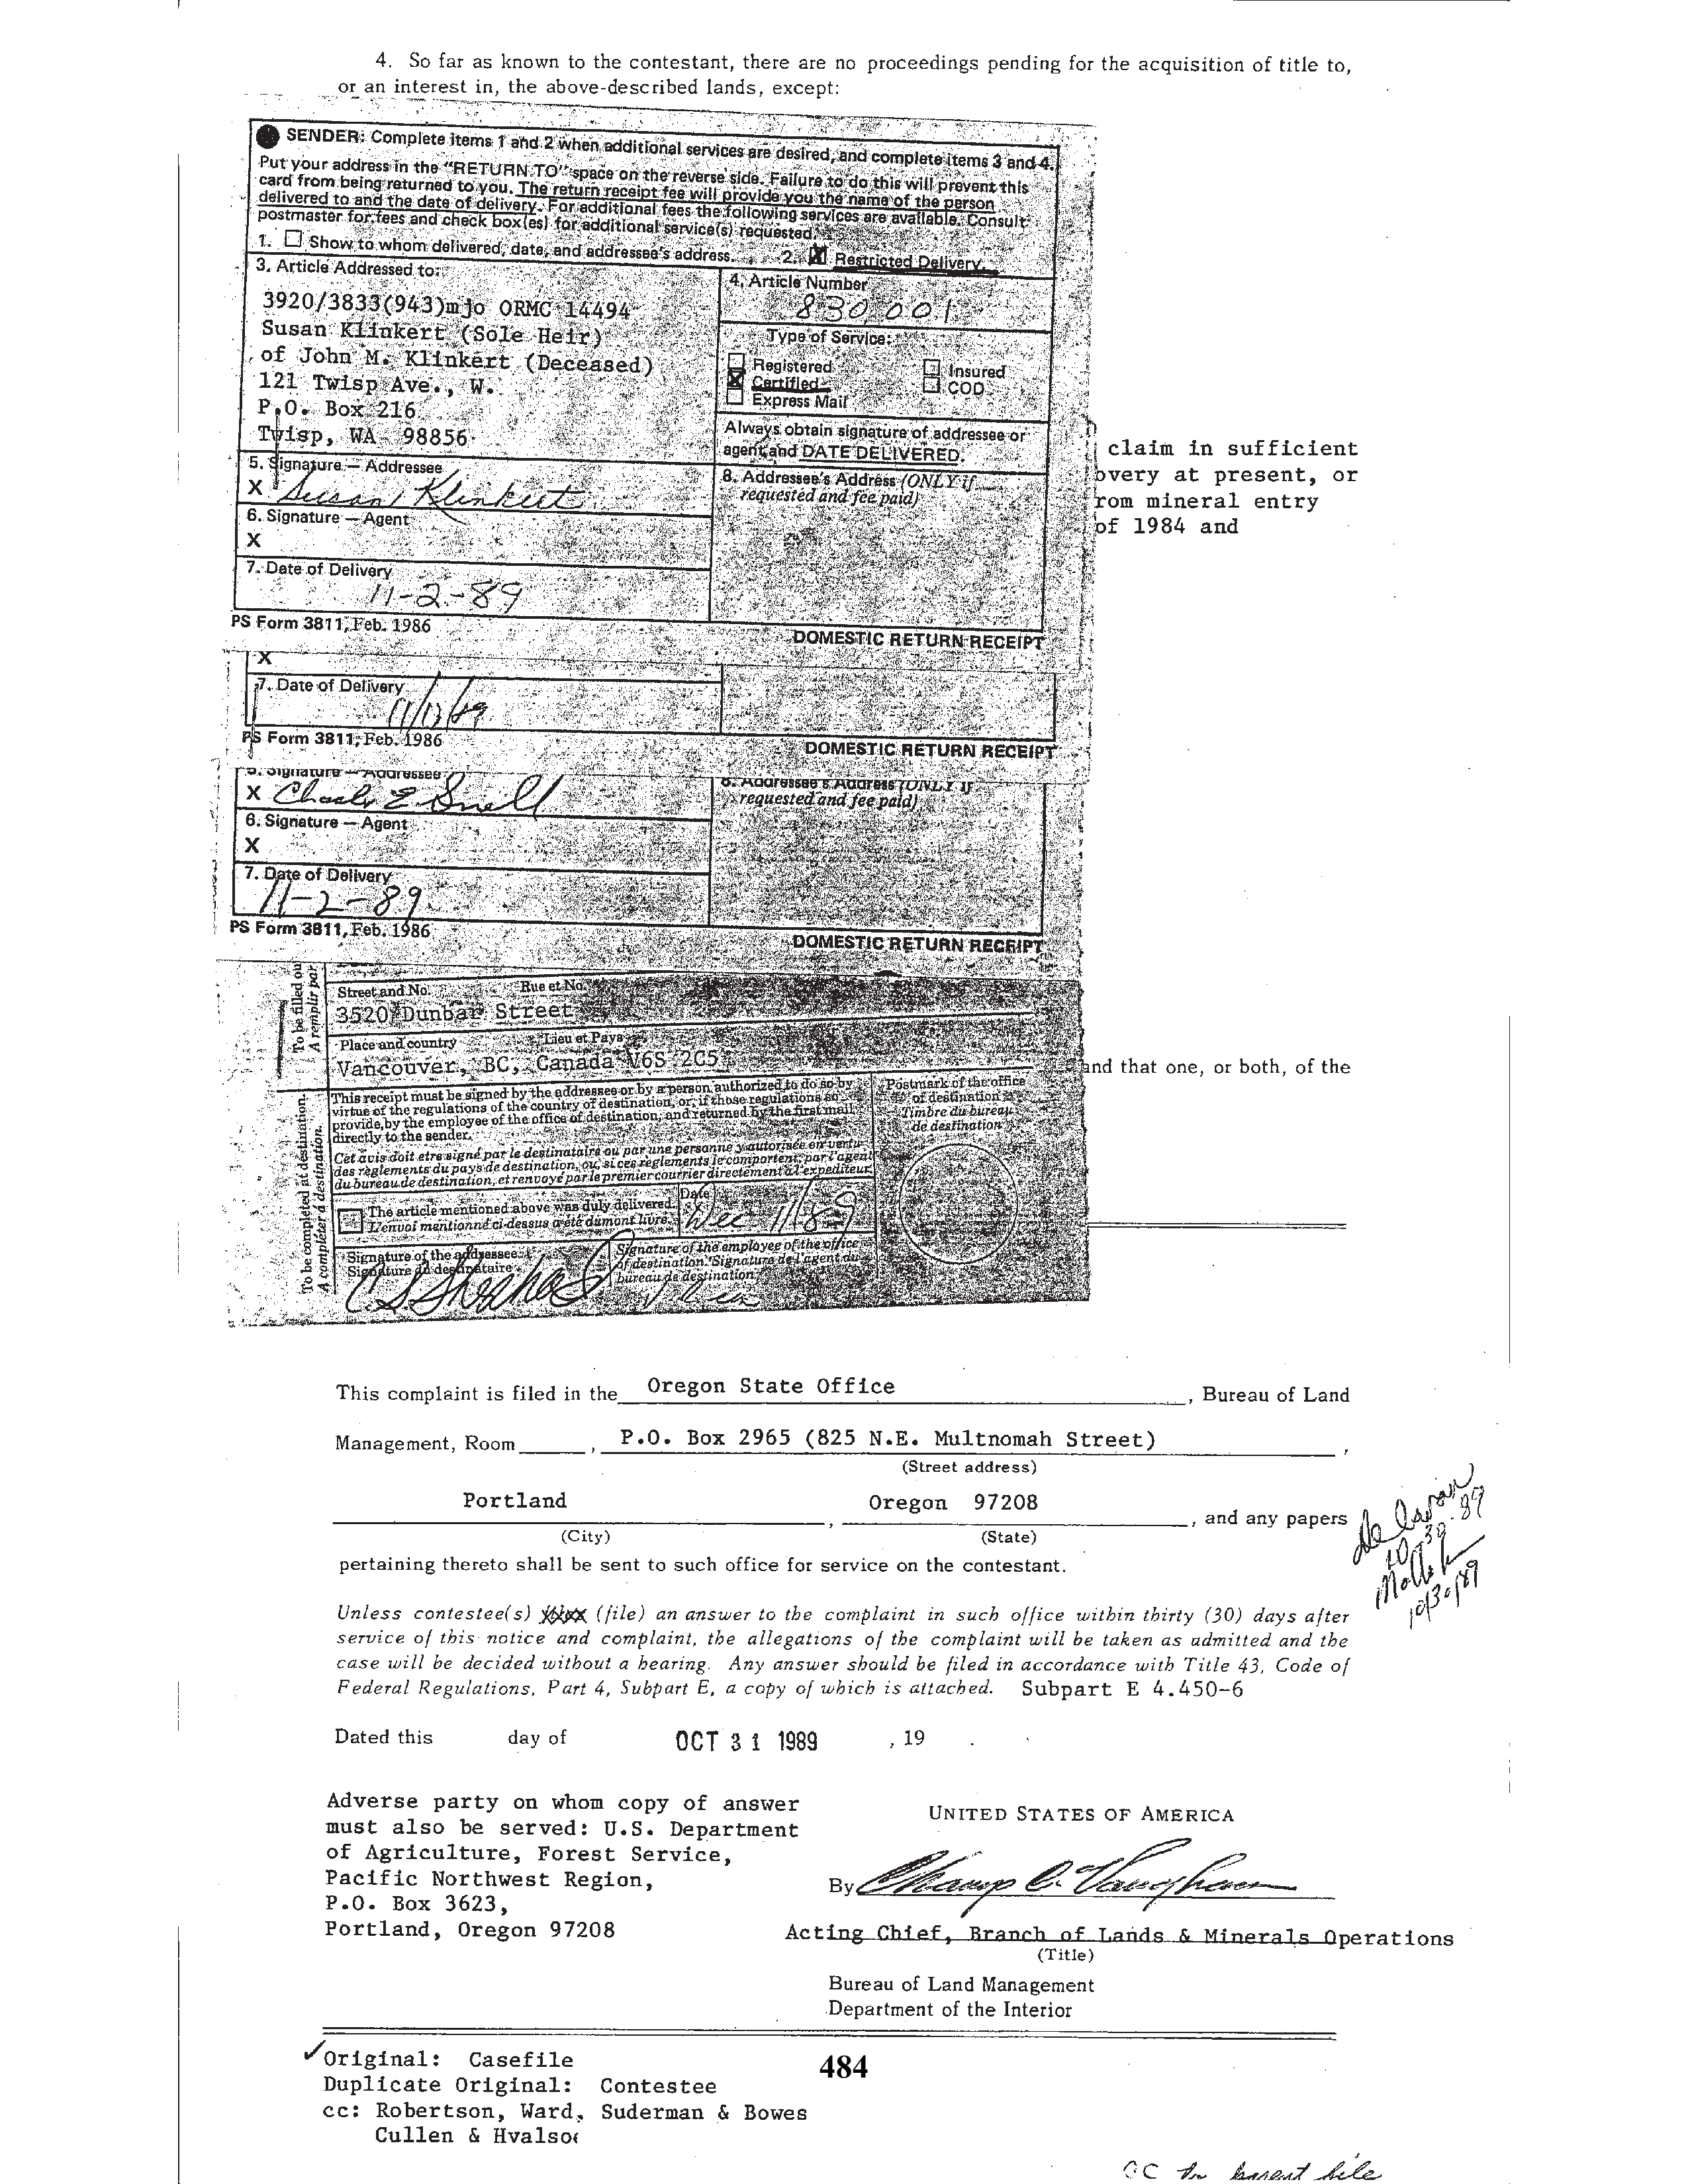 4. So far as known to the contestant, there are no proceedings pending for the acquisition of title to,
or an interest in, the above-described lands, except:
SENDER: Complete items 1 and 2 when additional services are desired, and complete items 3 and 4.
Put your address in the "RETURN TO" space on the reverse side. Failure to do this will prevent this
card from being returned to you. The return receipt fee will provide you the name of the person
delivered to and the date of delivery. For additional fees the following services are available. Consult
postmaster for fees and check box(es) for additional service(s) requested.
1. ☐ Show to whom delivered, date, and addressee's address. 2. ☒ Restricted Delivery.
3. Article Addressed to:
3920/3833(943)mjo ORMC 14494
Susan Klinkert (Sole Heir)
of John M. Klinkert (Deceased)
121 Twisp Ave., W.
P.O. Box 216
Twisp, WA 98856
4. Article Number
830,001
Type of Service:
☐ Registered ☐ Insured
☒ Certified ☐ COD
☐ Express Mail
Always obtain signature of addressee or
agent and DATE DELIVERED.
5. Signature — Addressee
X Susan Klinkert
6. Signature — Agent
X
7. Date of Delivery
11-2-89
8. Addressee's Address (ONLY if
requested and fee paid)
PS Form 3811, Feb. 1986 DOMESTIC RETURN RECEIPT
claim in sufficient
overy at present, or
rom mineral entry
of 1984 and
X
7. Date of Delivery
PS Form 3811, Feb. 1986 DOMESTIC RETURN RECEIPT
5. Signature — Addressee
X Charles E Snell
6. Signature — Agent
X
7. Date of Delivery
11-2-89
8. Addressee's Address (ONLY if
requested and fee paid)
PS Form 3811, Feb. 1986 DOMESTIC RETURN RECEIPT
To be filled ou
A remplir par
Street and No. Rue et No.
3520 Dunbar Street
Place and country Lieu et Pays
Vancouver, BC, Canada V6S 2C5
and that one, or both, of the
To be completed at destination.
A compléter à destination.
This receipt must be signed by the addressee or by a person authorized to do so by
virtue of the regulations of the country of destination, or, if those regulations so
provide, by the employee of the office of destination, and returned by the first mail
directly to the sender.
Cet avis doit etre signé par le destinataire ou par une personne y autorisée en vertu
des règlements du pays de destination, ou, si ces règlements le comportent, par l'agent
du bureau de destination, et renvoyé par le premier courrier directement à l'expediteur.
Postmark of the office
of destination
Timbre du bureau
de destination
The article mentioned above was duly delivered.
L'envoi mentionné ci-dessus a été dûment livré.
Date
Dec 1/89
Signature of the addressee
Signature du destinataire
Signature of the employee of the office
of destination. Signature de l'agent du
bureau de destination
This complaint is filed in the Oregon State Office, Bureau of Land
Management, Room , P.O. Box 2965 (825 N.E. Multnomah Street) ,
(Street address)
Portland , Oregon 97208 , and any papers
(City) (State)
pertaining thereto shall be sent to such office for service on the contestant.
10-30-89
10/30/89
Unless contestee(s) xxxx (file) an answer to the complaint in such office within thirty (30) days after
service of this notice and complaint, the allegations of the complaint will be taken as admitted and the
case will be decided without a hearing. Any answer should be filed in accordance with Title 43, Code of
Federal Regulations, Part 4, Subpart E, a copy of which is attached. Subpart E 4.450-6
Dated this day of OCT 31 1989 , 19 .
Adverse party on whom copy of answer
must also be served: U.S. Department
of Agriculture, Forest Service,
Pacific Northwest Region,
P.O. Box 3623,
Portland, Oregon 97208
UNITED STATES OF AMERICA
By Champ C. Vaughan
Acting Chief, Branch of Lands & Minerals Operations
(Title)
Bureau of Land Management
Department of the Interior
✓Original: Casefile
484
Duplicate Original: Contestee
cc: Robertson, Ward, Suderman & Bowes
Cullen & Hvalso
CC to parent file